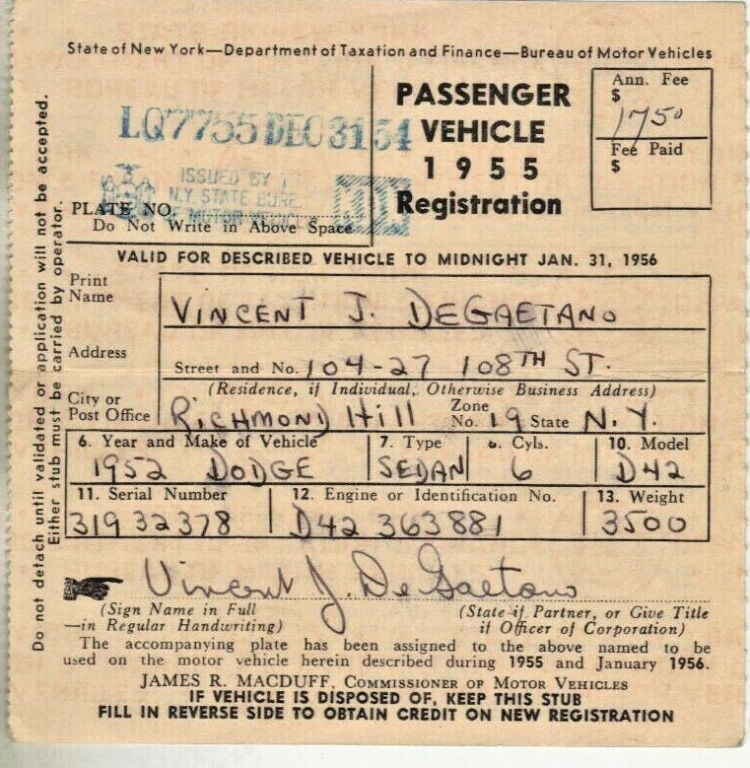 State of New York—Department of Taxation and Finance—Bureau of Motor Vehicles
LQ7755 DEC 31 54
ISSUED BY
N.Y. STATE BURE
OF MOTOR VEHICL
PLATE NO.
Do Not Write in Above Space
PASSENGER
VEHICLE
1955
Registration
Ann. Fee
$
1750
Fee Paid
$
VALID FOR DESCRIBED VEHICLE TO MIDNIGHT JAN. 31, 1956
Print Name VINCENT J. DEGAETANO
Address Street and No. 104-27 108TH ST.
(Residence, if Individual, Otherwise Business Address)
City or Post Office RICHMOND Hill Zone No. 19 State N.Y.
6. Year and Make of Vehicle 7. Type Cyls. 10. Model
1952 DODGE SEDAN 6 D42
11. Serial Number 12. Engine or Identification No. 13. Weight
319 32378 D42 363881 3500
Vincent J. DeGaetano
(Sign Name in Full (State if Partner, or Give Title
—in Regular Handwriting) if Officer of Corporation)
The accompanying plate has been assigned to the above named to be
used on the motor vehicle herein described during 1955 and January 1956.
JAMES R. MACDUFF, COMMISSIONER OF MOTOR VEHICLES
IF VEHICLE IS DISPOSED OF, KEEP THIS STUB
FILL IN REVERSE SIDE TO OBTAIN CREDIT ON NEW REGISTRATION
Do not detach until validated or application will not be accepted.
Either stub must be carried by operator.